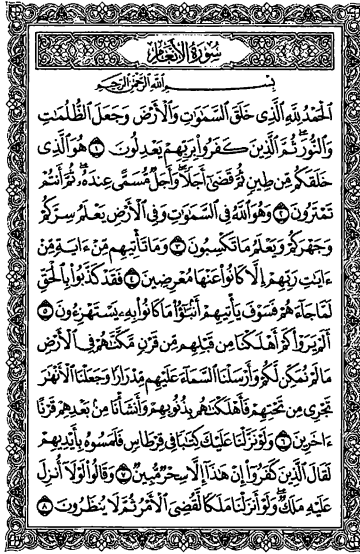 سُورَةُ الأَنْعَامِ
بِسْمِ اللَّهِ الرَّحْمَٰنِ الرَّحِيمِ
الْحَمْدُ لِلَّهِ الَّذِي خَلَقَ السَّمَٰوَٰتِ وَالْأَرْضَ وَجَعَلَ الظُّلُمَٰتِ
وَالنُّورَ ۖ ثُمَّ الَّذِينَ كَفَرُوا۟ بِرَبِّهِمْ يَعْدِلُونَ ١ هُوَ الَّذِي
خَلَقَكُم مِّن طِينٍ ثُمَّ قَضَىٰٓ أَجَلًا ۖ وَأَجَلٌ مُّسَمًّى عِندَهُۥ ۖ ثُمَّ أَنتُمْ
تَمْتَرُونَ ٢ وَهُوَ اللَّهُ فِي السَّمَٰوَٰتِ وَفِي الْأَرْضِ يَعْلَمُ سِرَّكُمْ
وَجَهْرَكُمْ وَيَعْلَمُ مَا تَكْسِبُونَ ٣ وَمَا تَأْتِيهِم مِّنْ ءَايَةٍ مِّنْ
ءَايَٰتِ رَبِّهِمْ إِلَّا كَانُوا۟ عَنْهَا مُعْرِضِينَ ٤ فَقَدْ كَذَّبُوا۟ بِالْحَقِّ
لَمَّا جَآءَهُمْ ۖ فَسَوْفَ يَأْتِيهِمْ أَنۢبَٰٓؤُا۟ مَا كَانُوا۟ بِهِۦ يَسْتَهْزِءُونَ ٥
أَلَمْ يَرَوْا۟ كَمْ أَهْلَكْنَا مِن قَبْلِهِم مِّن قَرْنٍ مَّكَّنَّٰهُمْ فِي الْأَرْضِ
مَا لَمْ نُمَكِّن لَّكُمْ وَأَرْسَلْنَا السَّمَآءَ عَلَيْهِم مِّدْرَارًا وَجَعَلْنَا الْأَنْهَٰرَ
تَجْرِي مِن تَحْتِهِمْ فَأَهْلَكْنَٰهُم بِذُنُوبِهِمْ وَأَنشَأْنَا مِنۢ بَعْدِهِمْ قَرْنًا
ءَاخَرِينَ ٦ وَلَوْ نَزَّلْنَا عَلَيْكَ كِتَٰبًا فِي قِرْطَاسٍ فَلَمَسُوهُ بِأَيْدِيهِمْ
لَقَالَ الَّذِينَ كَفَرُوٓا۟ إِنْ هَٰذَآ إِلَّا سِحْرٌ مُّبِينٌ ٧ وَقَالُوا۟ لَوْلَآ أُنزِلَ
عَلَيْهِ مَلَكٌ ۖ وَلَوْ أَنزَلْنَا مَلَكًا لَّقُضِيَ الْأَمْرُ ثُمَّ لَا يُنظَرُونَ ٨